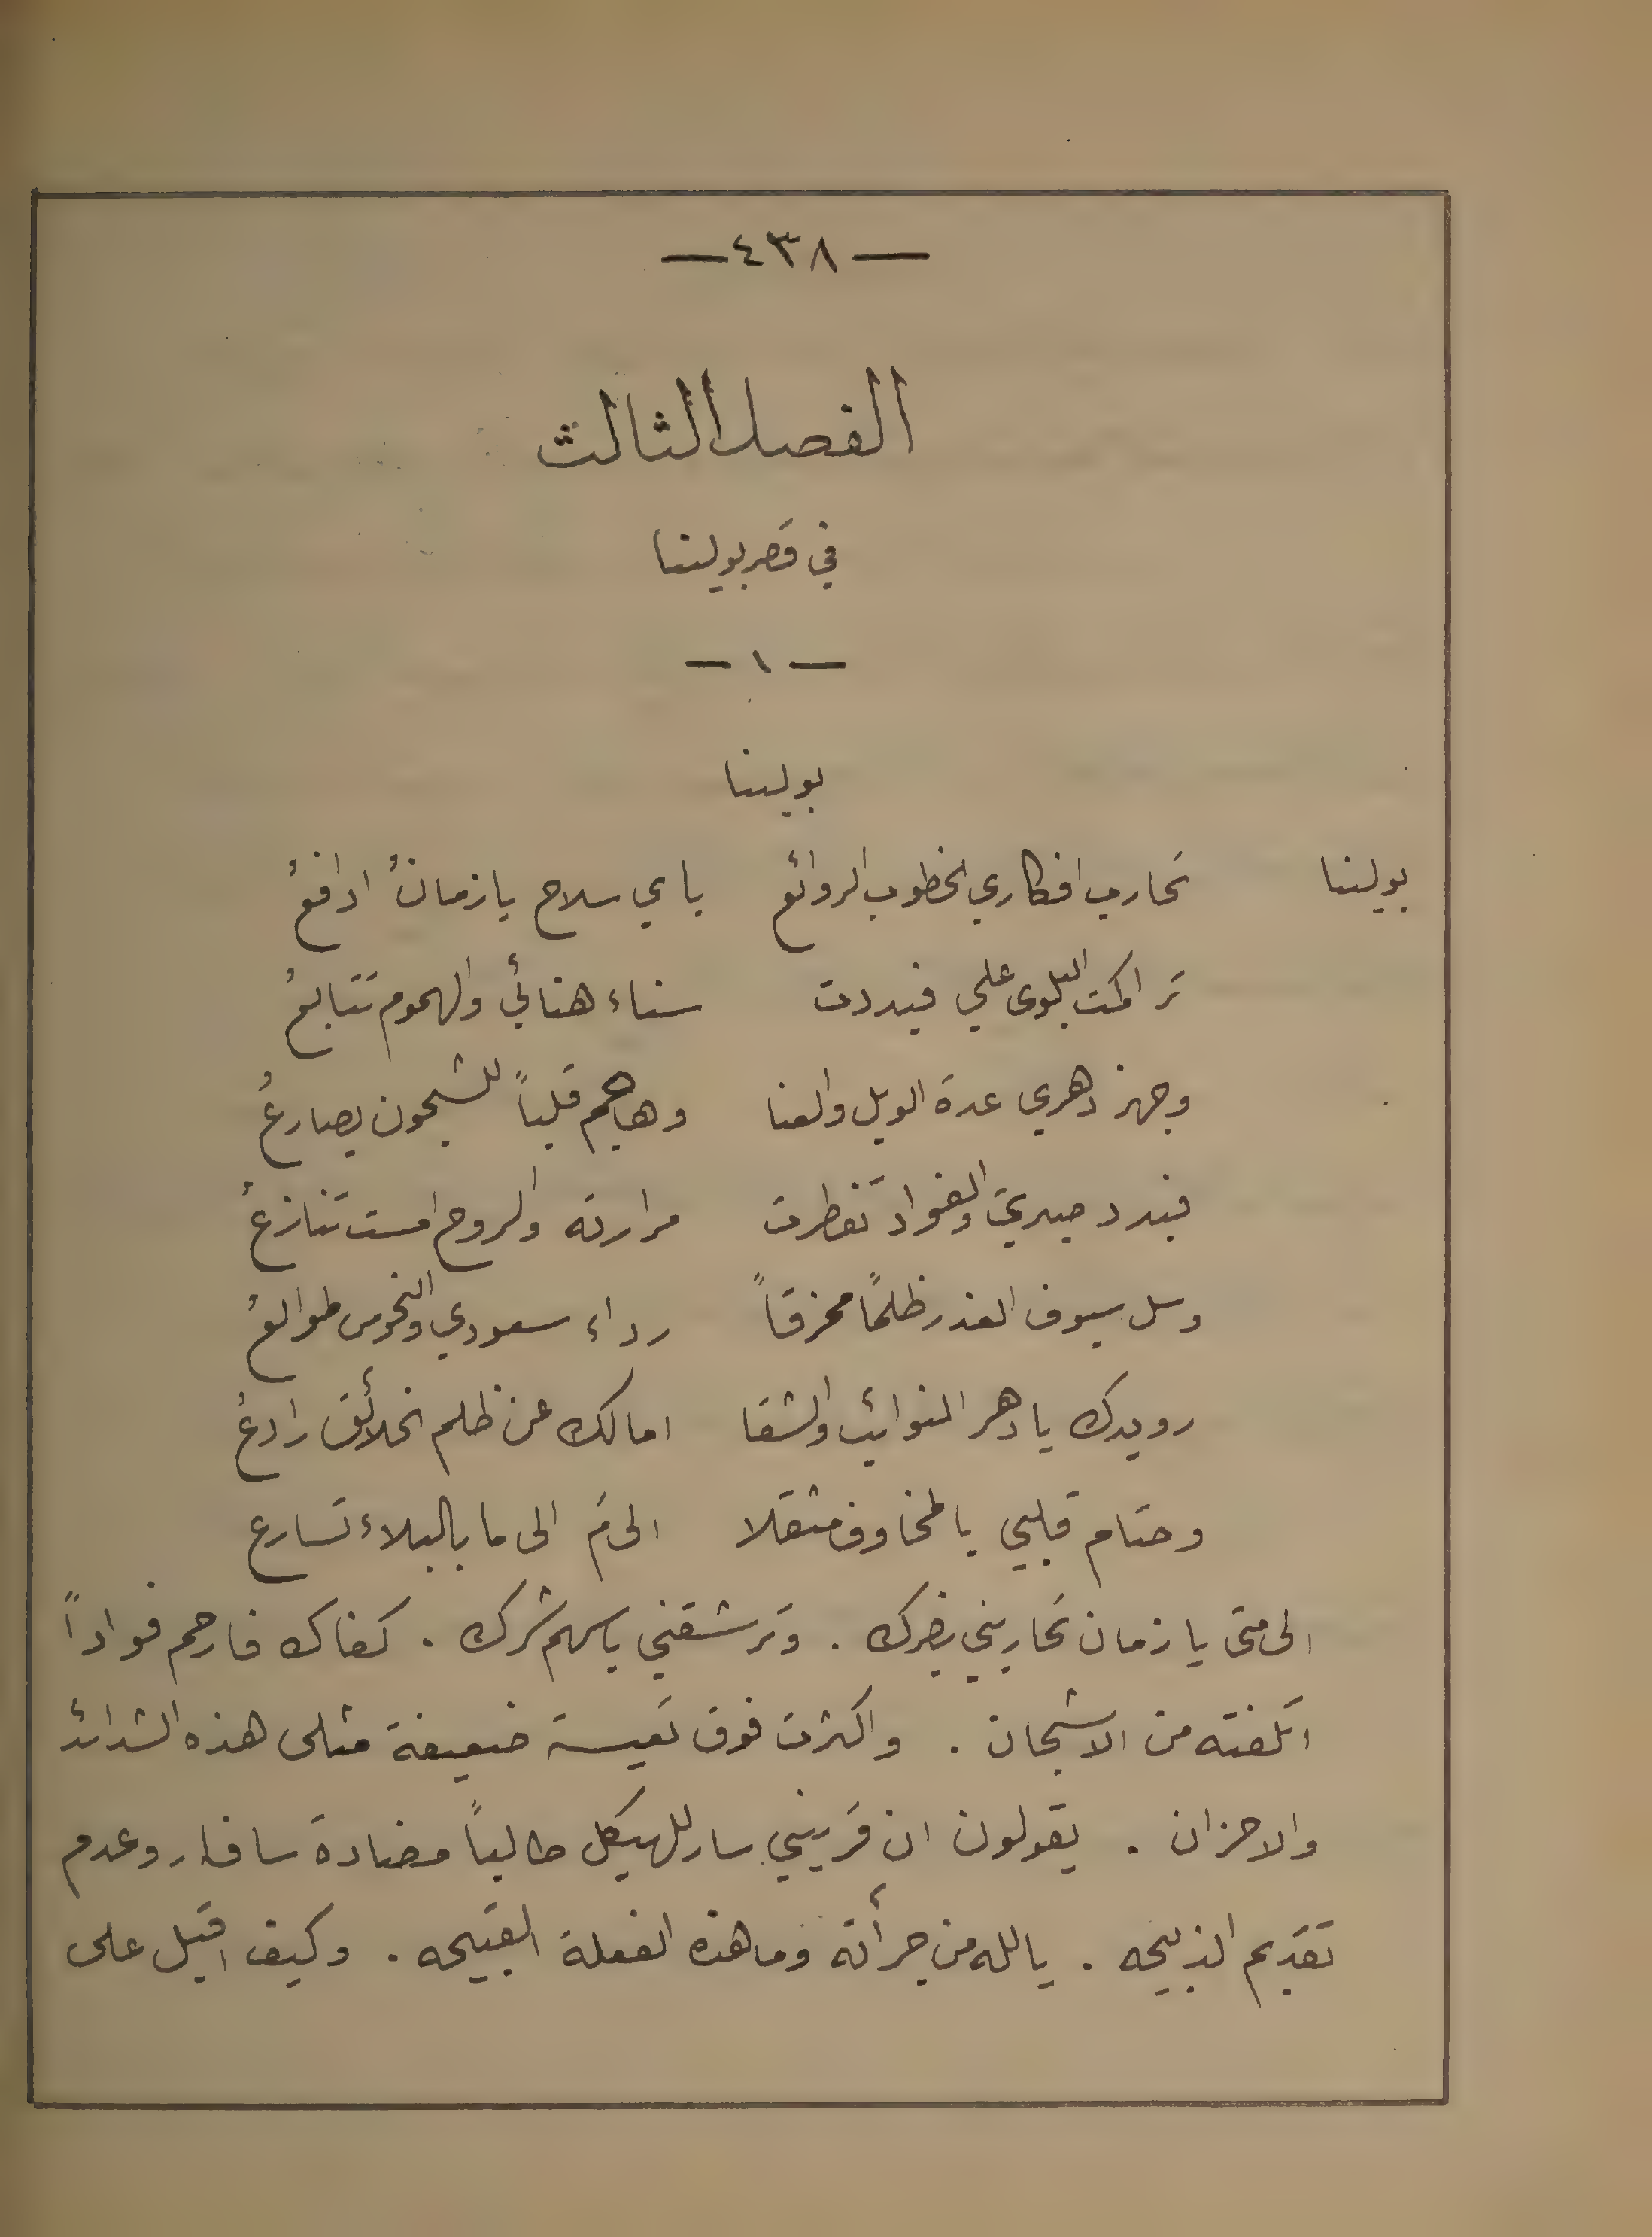 — ٤٣٨ —
الفصل الثالث
في قصر بولينا
— ١ —
بولينا
بولينا تحارب افكاري الخطوب الروائع باي سلاح يا زمانُ ادافعُ
تراكمت البلوى علي فبددت سناء هنائي والهموم تتابعُ
وجهز دهري عدة الويل والعنا وهاجم قلباً للشجون يصارعُ
فبدد صبري والفواد تفطرت مرارته والروح امست تنازعُ
وسل سيوف الغدر ظلمًا ممزقاً رداء سعودي والنحوس طوالعُ
رويدك يا دهر النوائب والشقا امالك عن ظلم الخلائق رادعُ
وحتام قلبي بالمخاوف مثقلا الى مَ الى ما بالبلاء تسارع
الى متى يا زمان تحاربني بضرك . وترشقني باسهم شرك . كفاك فارحم فواداً
اتلفته من الاشجان . واكثرت فوق تعيسة ضعيفة مثلى هذه الشدائد
والاحزان . يقولون ان قريني سار للهيكل طالباً مضادة سافار وعدم
تقديم الذبيحه . يالله من جرأته وما هذه الفعلة القبيحه . وكيف اقبل على